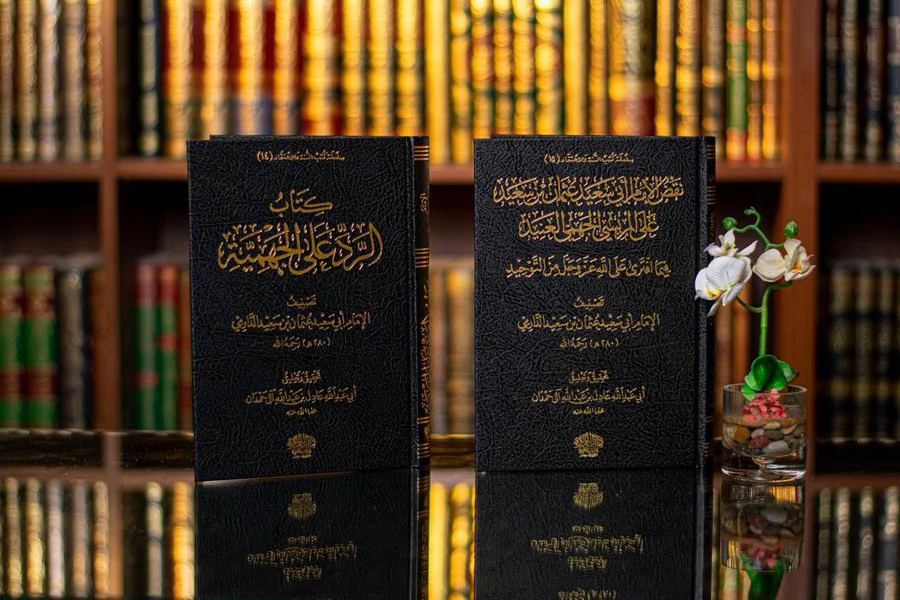 سلسلة كتب السنة والاعتقاد (١٤)
كِتَابُ
الرَّدِّ عَلَى الجَهْمِيَّةِ
تصنيف
الإمام أبي سعيد عثمان بن سعيد الدارمي
(٢٨٠ هـ) رحمه الله
تحقيق وتعليق
أبي عبد الله عادل بن عبد الله آل حمدان
عفا الله عنه
سلسلة كتب السنة والاعتقاد (١٥)
نقض الإمام أبي سعيد عثمان بن سعيد
على المريسي الجهمي العنيد
فيما افترى على الله عز وجل من التوحيد
تصنيف
الإمام أبي سعيد عثمان بن سعيد الدارمي
(٢٨٠ هـ) رحمه الله
تحقيق وتعليق
أبي عبد الله عادل بن عبد الله آل حمدان
عفا الله عنه